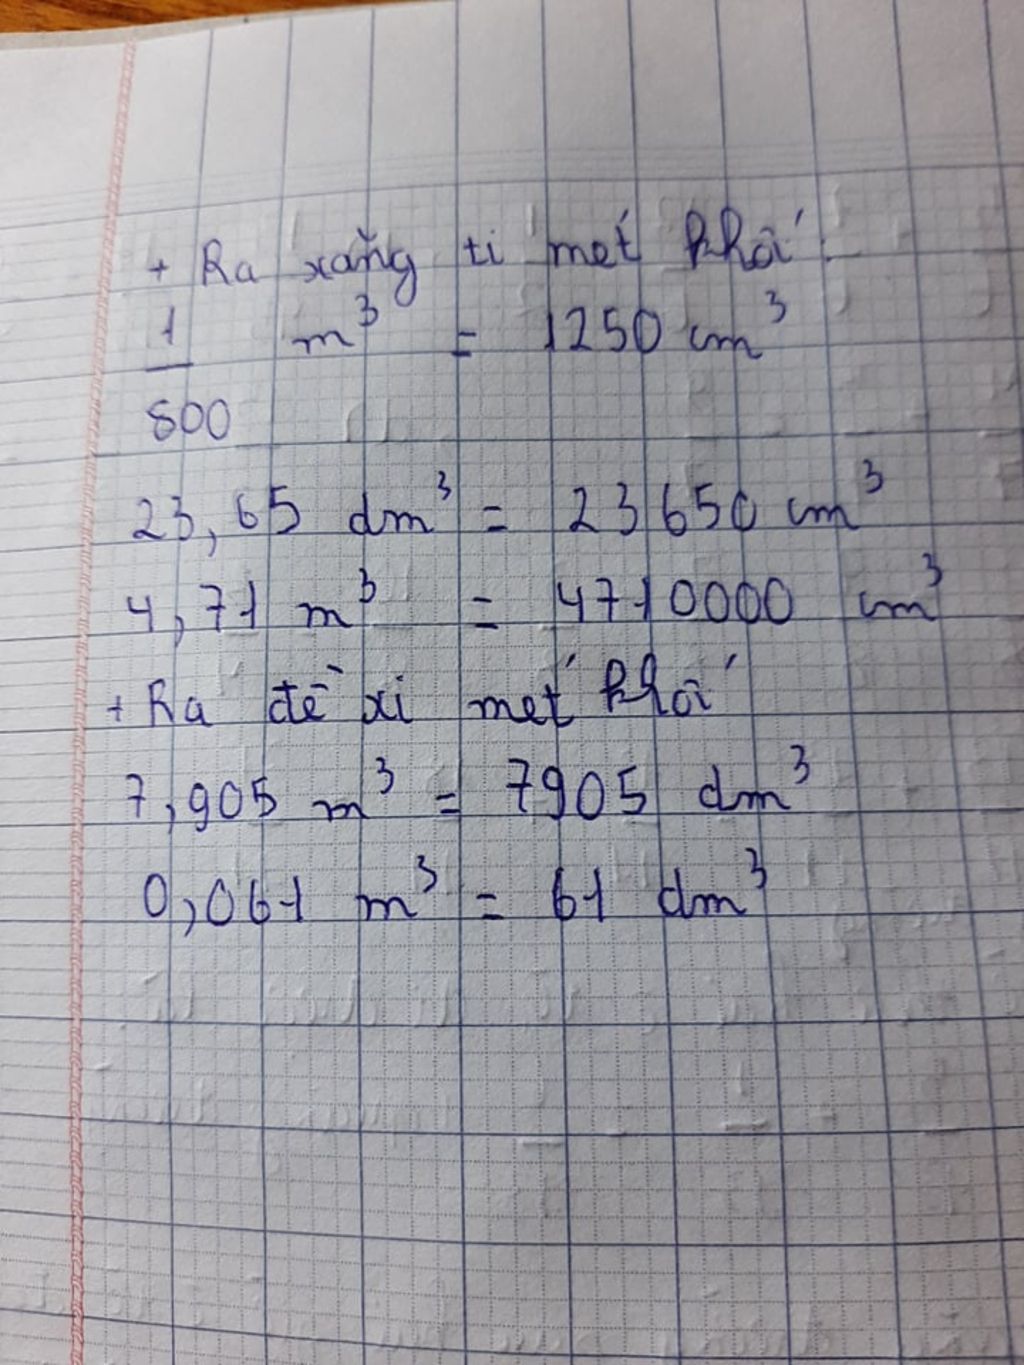 + Ra xăng ti mét khối:
1/800 m³ = 1250 cm³
23,65 dm³ = 23650 cm³
4,71 m³ = 4710000 cm³
+ Ra đề xi mét khối
7,905 m³ = 7905 dm³
0,061 m³ = 61 dm³